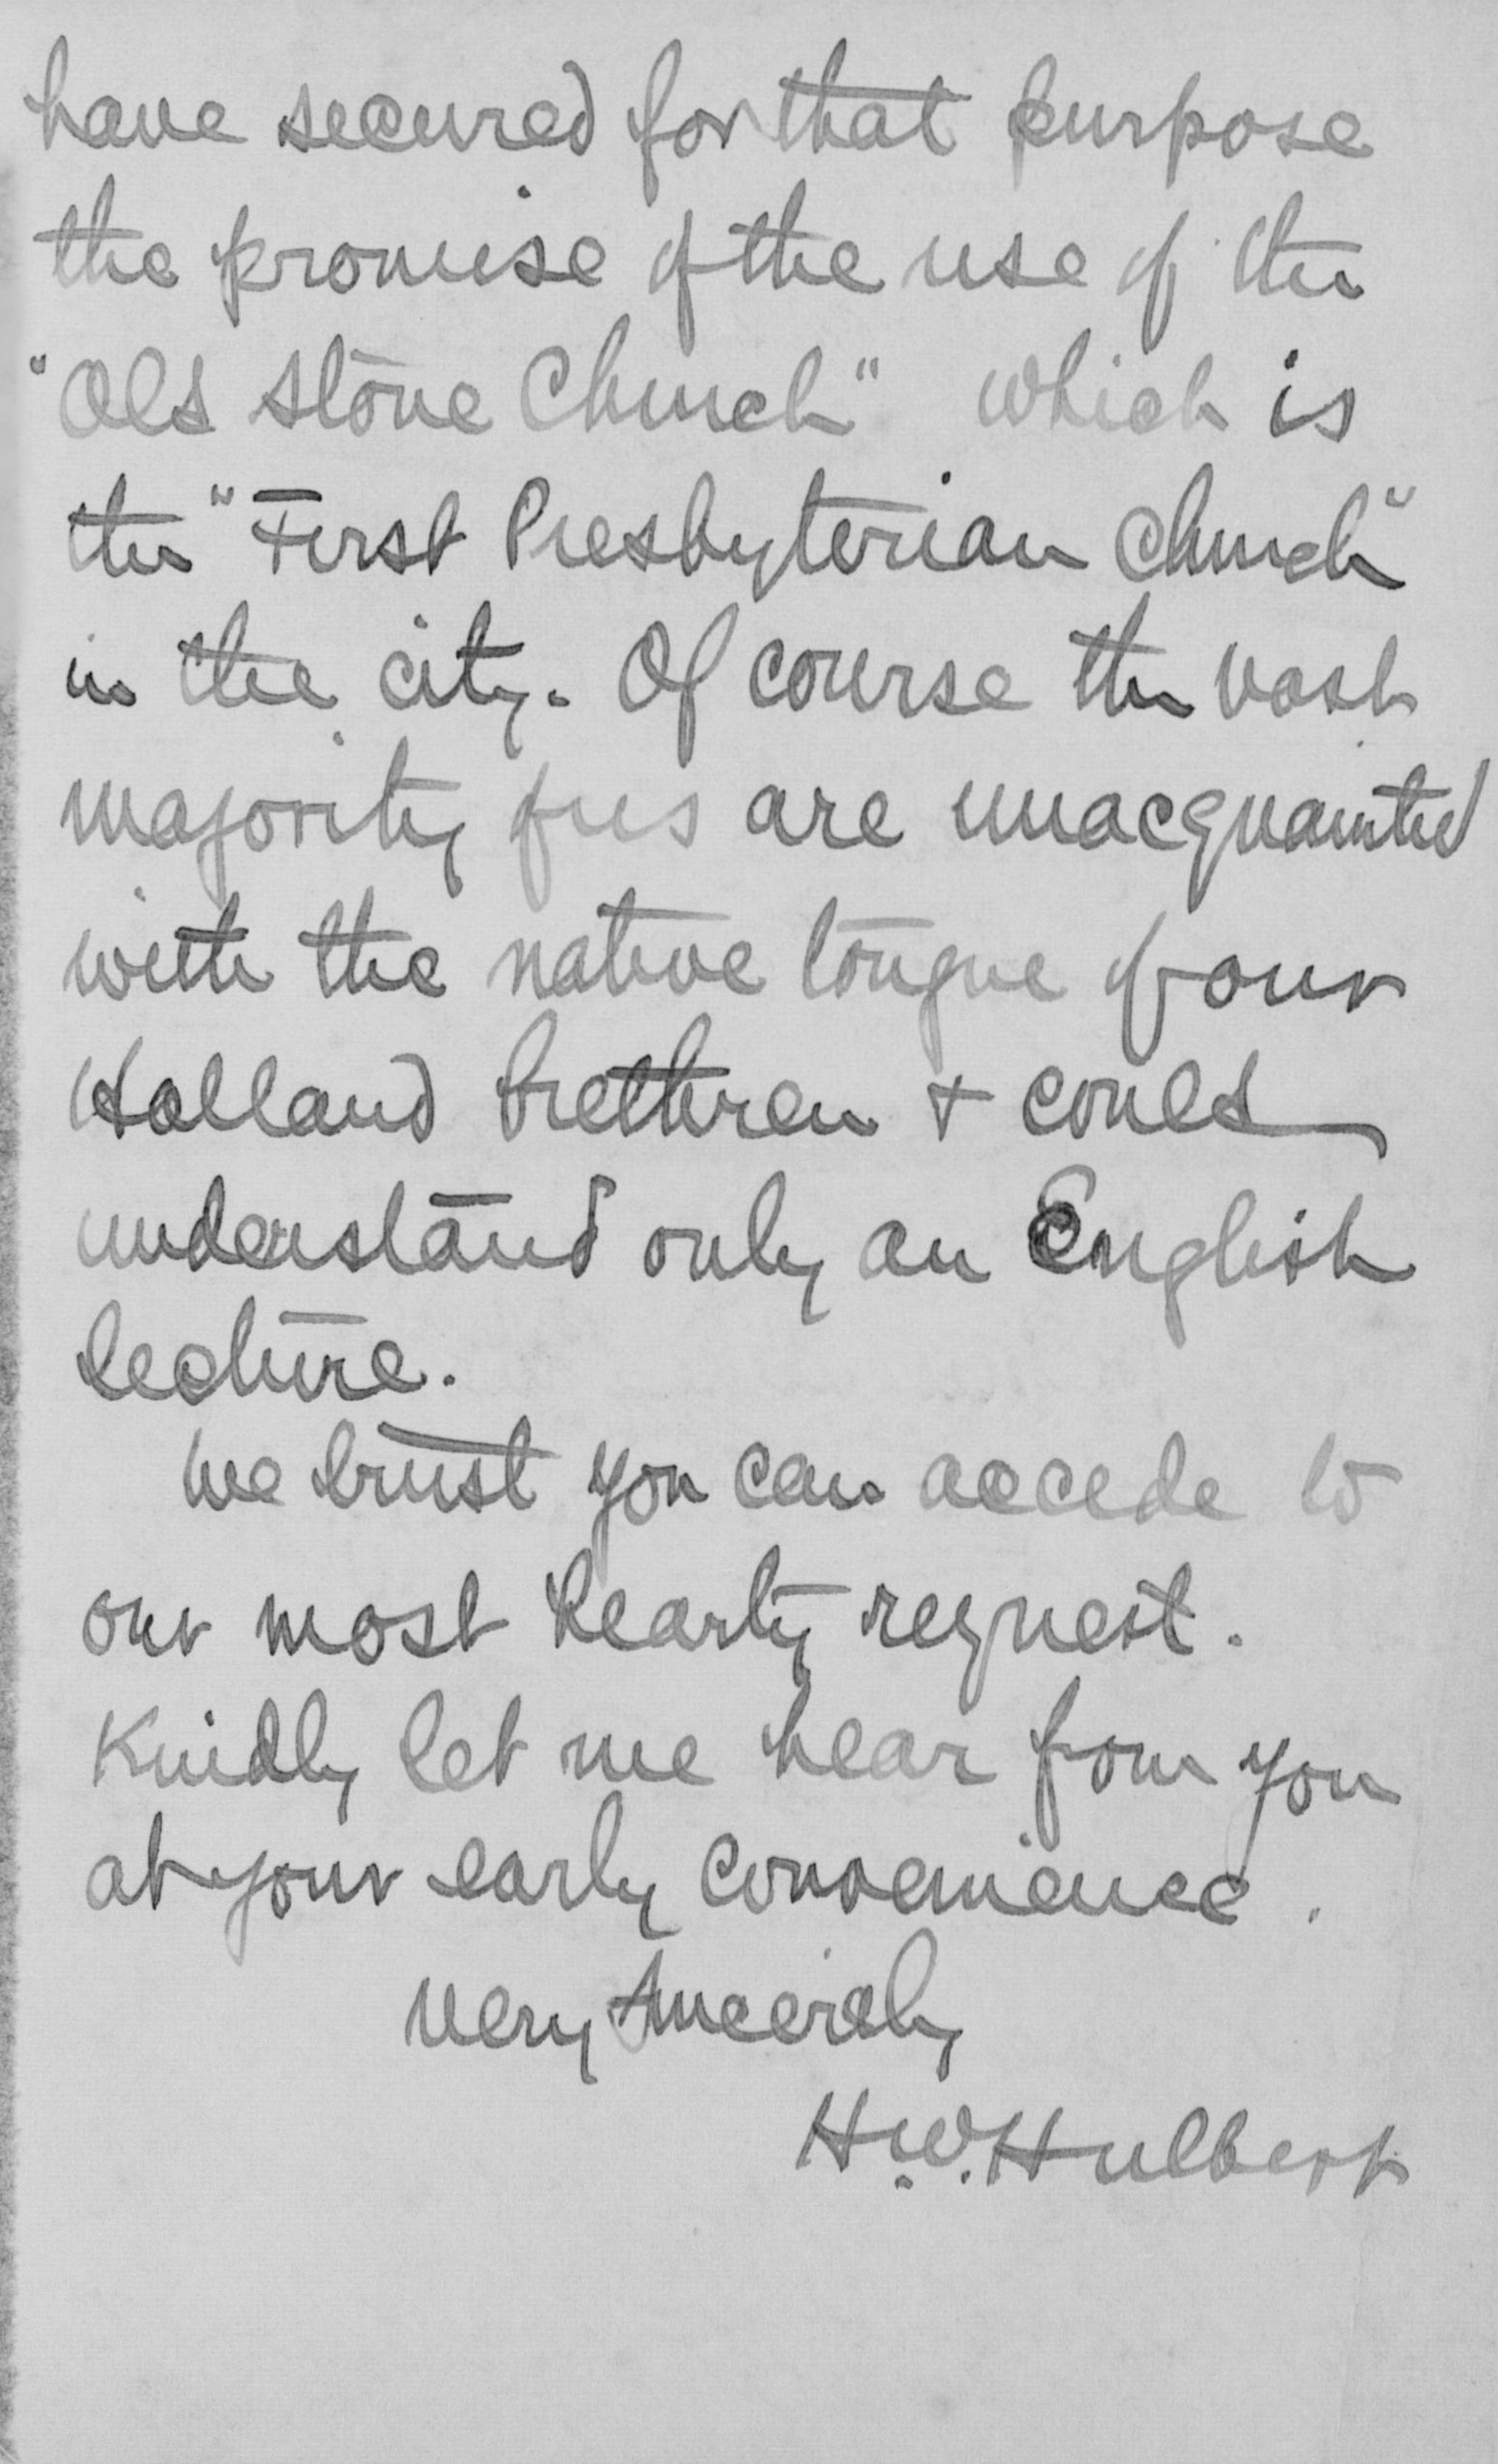 have secured for that purpose
the promise of the use of the
"Old Stone Church" which is
the "First Presbyterian Church"
in the city. Of course the vast
majority of us are unacquainted
with the native tongue of our
Holland brethren + could
understand only an English
lecture.
We trust you can accede to
our most hearty request.
Kindly let me hear from you
at your early convenience.
Very sincerely
H.W. Hulbert